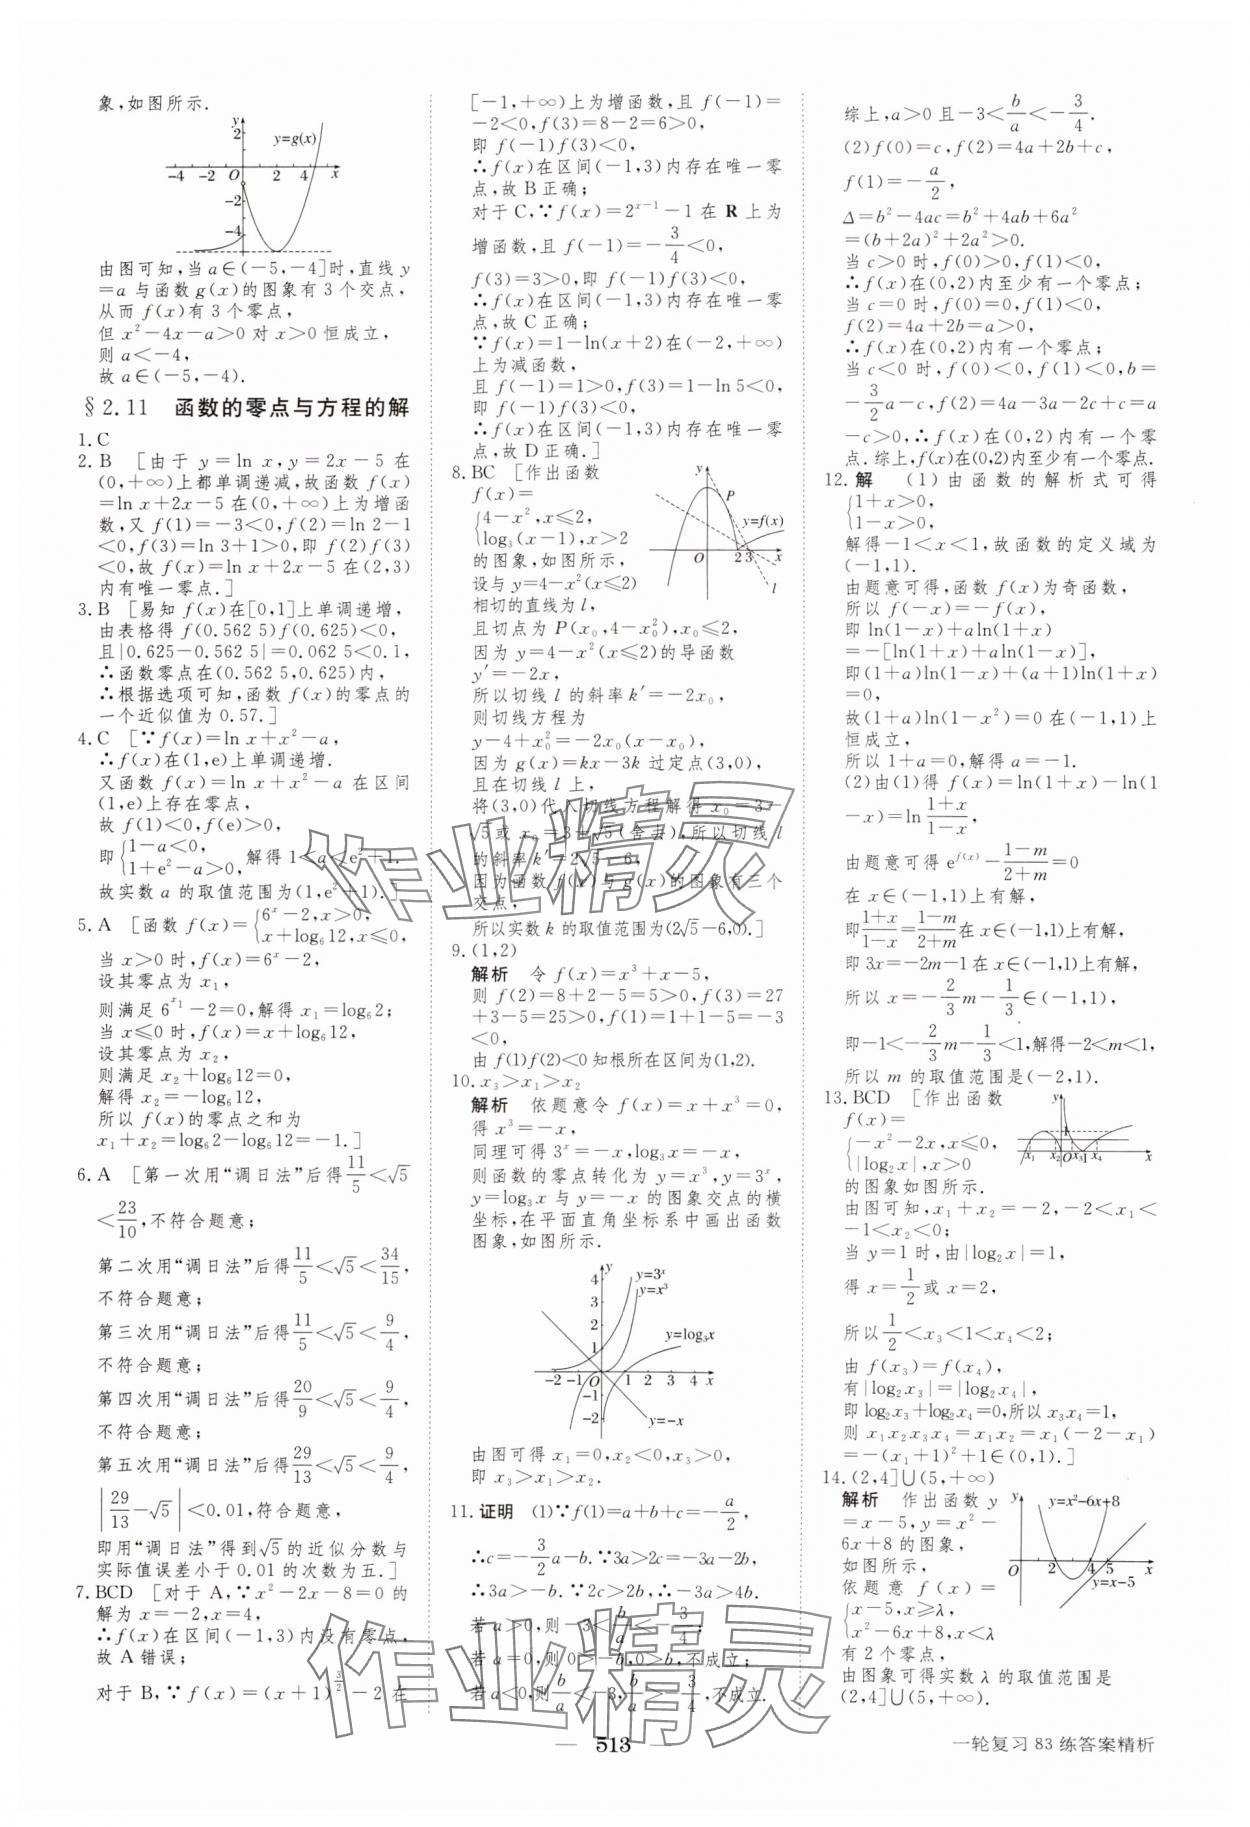 象,如图所示.
y
2
y=g(x)
-4 -2 O 2 4 x
-2
-4
由图可知,当 a∈(-5,-4]时,直线 y
=a 与函数 g(x)的图象有 3 个交点,
从而 f(x)有 3 个零点,
但 x²-4x-a>0 对 x>0 恒成立,
则 a<-4,
故 a∈(-5,-4).
§2.11 函数的零点与方程的解
1.C
2.B [由于 y=ln x,y=2x-5 在
(0,+∞)上都单调递减,故函数 f(x)
=ln x+2x-5 在(0,+∞)上为增函
数,又 f(1)=-3<0,f(2)=ln 2-1
<0,f(3)=ln 3+1>0,即 f(2)f(3)
<0,故 f(x)=ln x+2x-5 在(2,3)
内有唯一零点.]
3.B [易知 f(x)在[0,1]上单调递增,
由表格得 f(0.562 5)f(0.625)<0,
且|0.625-0.562 5|=0.062 5<0.1,
∴函数零点在(0.562 5,0.625)内,
∴根据选项可知,函数 f(x)的零点的
一个近似值为 0.57.]
4.C [∵f(x)=ln x+x²-a,
∴f(x)在(1,e)上单调递增.
又函数 f(x)=ln x+x²-a 在区间
(1,e)上存在零点,
故 f(1)<0,f(e)>0,
即{1-a<0, 1+e²-a>0, 解得 1<a<e²+1.
故实数 a 的取值范围为(1,e²+1).]
5.A [函数 f(x)={6ˣ-2,x>0, x+log₆12,x≤0,
当 x>0 时,f(x)=6ˣ-2,
设其零点为 x₁,
则满足 6^{x₁}-2=0,解得 x₁=log₆2;
当 x≤0 时,f(x)=x+log₆12,
设其零点为 x₂,
则满足 x₂+log₆12=0,
解得 x₂=-log₆12,
所以 f(x)的零点之和为
x₁+x₂=log₆2-log₆12=-1.]
6.A [第一次用“调日法”后得11/5<√5
<23/10,不符合题意;
第二次用“调日法”后得11/5<√5<34/15,
不符合题意;
第三次用“调日法”后得11/5<√5<9/4,
不符合题意;
第四次用“调日法”后得20/9<√5<9/4,
不符合题意;
第五次用“调日法”后得29/13<√5<9/4,
|29/13-√5|<0.01,符合题意,
即用“调日法”得到√5的近似分数与
实际值误差小于 0.01 的次数为五.]
7.BCD [对于 A,∵x²-2x-8=0 的
解为 x=-2,x=4,
∴f(x)在区间(-1,3)内没有零点,
故 A 错误;
对于 B,∵f(x)=(x+1)^{3/2}-2 在
[-1,+∞)上为增函数,且 f(-1)=
-2<0,f(3)=8-2=6>0,
即 f(-1)f(3)<0,
∴f(x)在区间(-1,3)内存在唯一零
点,故 B 正确;
对于 C,∵f(x)=2ˣ⁻¹-1 在 R 上为
增函数,且 f(-1)=-3/4<0,
f(3)=3>0,即 f(-1)f(3)<0,
∴f(x)在区间(-1,3)内存在唯一零
点,故 C 正确;
∵f(x)=1-ln(x+2)在(-2,+∞)
上为减函数,
且 f(-1)=1>0,f(3)=1-ln 5<0,
即 f(-1)f(3)<0,
∴f(x)在区间(-1,3)内存在唯一零
点,故 D 正确.]
8.BC [作出函数
f(x)=
{4-x²,x≤2, log₃(x-1),x>2
的图象,如图所示,
y
P
y=f(x)
O 2 3 x
l
设与 y=4-x²(x≤2)
相切的直线为 l,
且切点为 P(x₀,4-x₀²),x₀≤2,
因为 y=4-x²(x≤2)的导函数
y′=-2x,
所以切线 l 的斜率 k′=-2x₀,
则切线方程为
y-4+x₀²=-2x₀(x-x₀),
因为 g(x)=kx-3k 过定点(3,0),
且在切线 l 上,
将(3,0)代入切线方程解得 x₀=3-
√5或 x₀=3+√5(舍去),所以切线 l
的斜率 k′=2√5-6,
因为函数 f(x)与 g(x)的图象有三个
交点,
所以实数 k 的取值范围为(2√5-6,0).]
9.(1,2)
解析 令 f(x)=x³+x-5,
则 f(2)=8+2-5=5>0,f(3)=27
+3-5=25>0,f(1)=1+1-5=-3
<0,
由 f(1)f(2)<0 知根所在区间为(1,2).
10.x₃>x₁>x₂
解析 依题意令 f(x)=x+x³=0,
得 x³=-x,
同理可得 3ˣ=-x,log₃x=-x,
则函数的零点转化为 y=x³,y=3ˣ,
y=log₃x 与 y=-x 的图象交点的横
坐标,在平面直角坐标系中画出函数
图象,如图所示.
y
4 y=3ˣ
3 y=x³
2
1 y=log₃x
-2 -1 O 1 2 3 4 x
-1
-2 y=-x
由图可得 x₁=0,x₂<0,x₃>0,
即 x₃>x₁>x₂.
11.证明 (1)∵f(1)=a+b+c=-a/2,
∴c=-3/2a-b.∵3a>2c=-3a-2b,
∴3a>-b.∵2c>2b,∴-3a>4b.
若 a>0,则-3<b/a<-3/4;
若 a=0,则 0>-b,0>b,不成立;
若 a<0,则b/a<-3,b/a>-3/4,不成立.
综上,a>0 且-3<b/a<-3/4.
(2)f(0)=c,f(2)=4a+2b+c,
f(1)=-a/2,
Δ=b²-4ac=b²+4ab+6a²
=(b+2a)²+2a²>0.
当 c>0 时,f(0)>0,f(1)<0,
∴f(x)在(0,2)内至少有一个零点;
当 c=0 时,f(0)=0,f(1)<0,
f(2)=4a+2b=a>0,
∴f(x)在(0,2)内有一个零点;
当 c<0 时,f(0)<0,f(1)<0,b=
-3/2a-c,f(2)=4a-3a-2c+c=a
-c>0,∴f(x)在(0,2)内有一个零
点.综上,f(x)在(0,2)内至少有一个零点.
12.解 (1)由函数的解析式可得
{1+x>0, 1-x>0,
解得-1<x<1,故函数的定义域为
(-1,1).
由题意可得,函数 f(x)为奇函数,
所以 f(-x)=-f(x),
即 ln(1-x)+aln(1+x)
=-[ln(1+x)+aln(1-x)],
即(1+a)ln(1-x)+(a+1)ln(1+x)
=0,
故(1+a)ln(1-x²)=0 在(-1,1)上
恒成立,
所以 1+a=0,解得 a=-1.
(2)由(1)得 f(x)=ln(1+x)-ln(1
-x)=ln (1+x)/(1-x),
由题意可得 e^{f(x)}-(1-m)/(2+m)=0
在 x∈(-1,1)上有解,
即(1+x)/(1-x)=(1-m)/(2+m)在 x∈(-1,1)上有解,
即 3x=-2m-1 在 x∈(-1,1)上有解,
所以 x=-2/3m-1/3∈(-1,1),
即-1<-2/3m-1/3<1,解得-2<m<1,
所以 m 的取值范围是(-2,1).
13.BCD [作出函数
f(x)=
{-x²-2x,x≤0, |log₂x|,x>0
的图象如图所示.
y
1
x₁ x₂ O x₃ 1 x₄ x
由图可知,x₁+x₂=-2,-2<x₁<
-1<x₂<0;
当 y=1 时,由|log₂x|=1,
得 x=1/2或 x=2,
所以1/2<x₃<1<x₄<2;
由 f(x₃)=f(x₄),
有|log₂x₃|=|log₂x₄|,
即 log₂x₃+log₂x₄=0,所以 x₃x₄=1,
则 x₁x₂x₃x₄=x₁x₂=x₁(-2-x₁)
=-(x₁+1)²+1∈(0,1).]
14.(2,4]∪(5,+∞)
解析 作出函数 y
=x-5,y=x²-
6x+8 的图象,
如图所示,
y
y=x²-6x+8
O 2 4 5 x
y=x-5
依题意 f(x)=
{x-5,x≥λ, x²-6x+8,x<λ
有 2 个零点,
由图象可得实数 λ 的取值范围是
(2,4]∪(5,+∞).
作业精灵
作业精灵
— 513 —
一轮复习 83 练答案精析